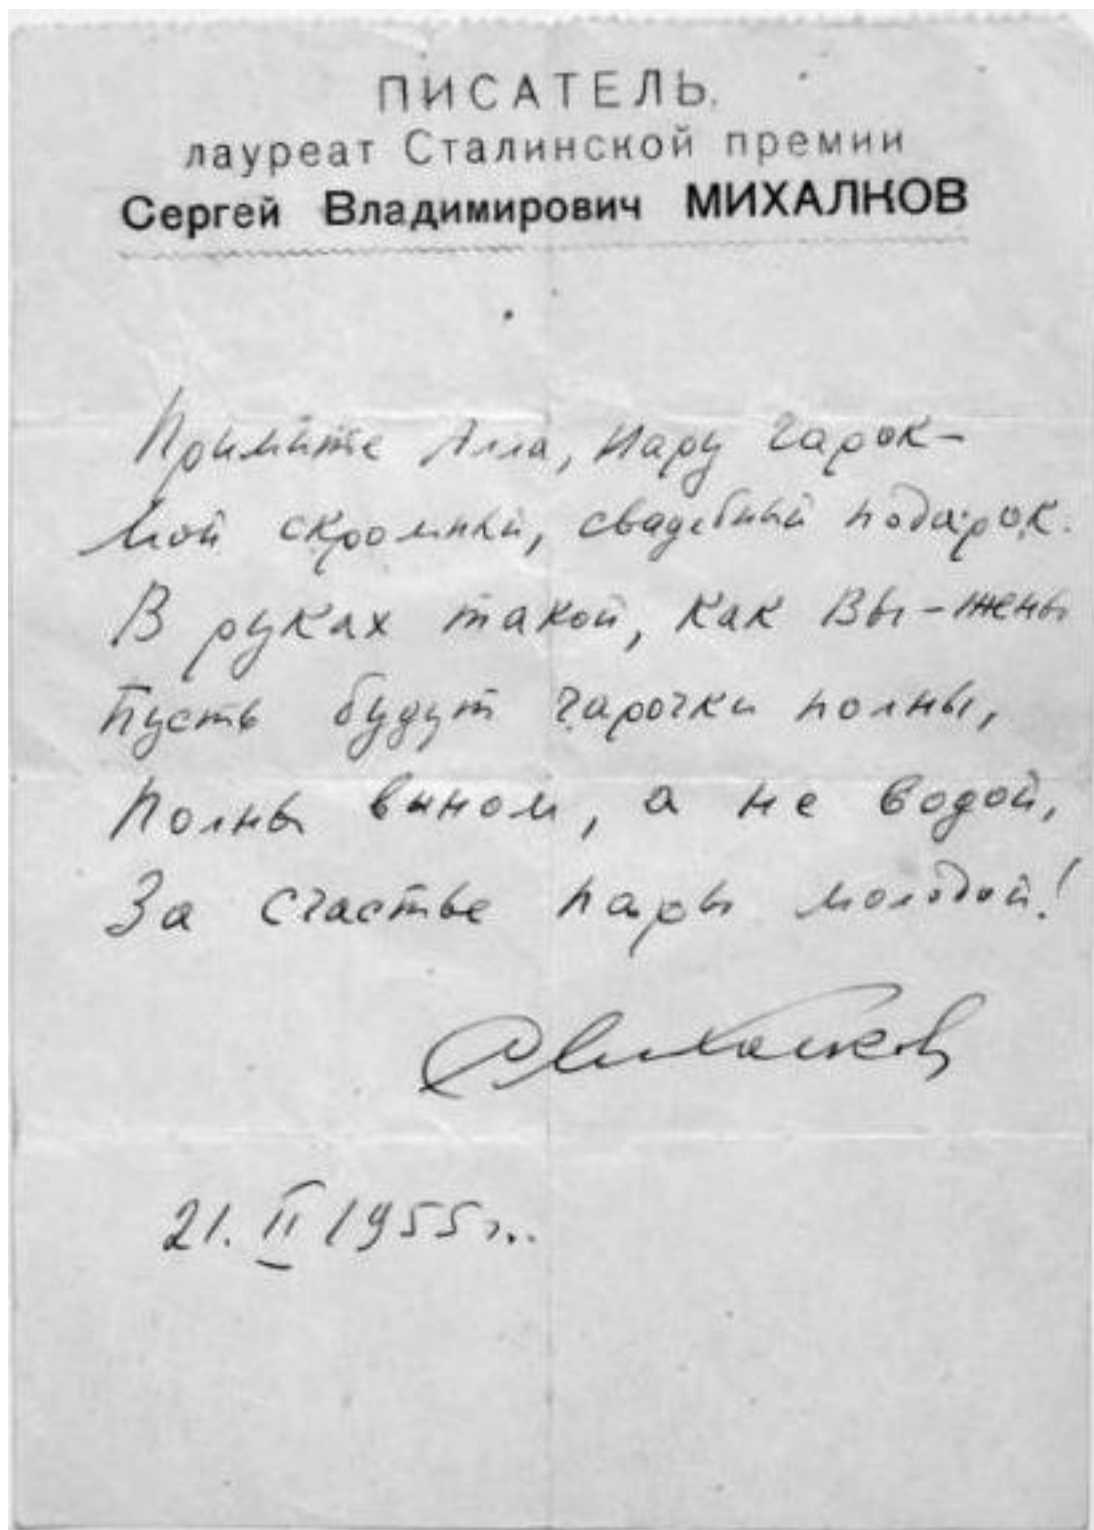 ПИСАТЕЛЬ.
лауреат Сталинской премии
Сергей Владимирович МИХАЛКОВ
Примите Алла, пару чарок–
Мой скромный, свадебный подарок.
В руках такой, как Вы–жены
Пусть будут чарочки полны,
Полны вином, а не водой,
За счастье пары молодой!
СМихалков
21. II 1955 г..